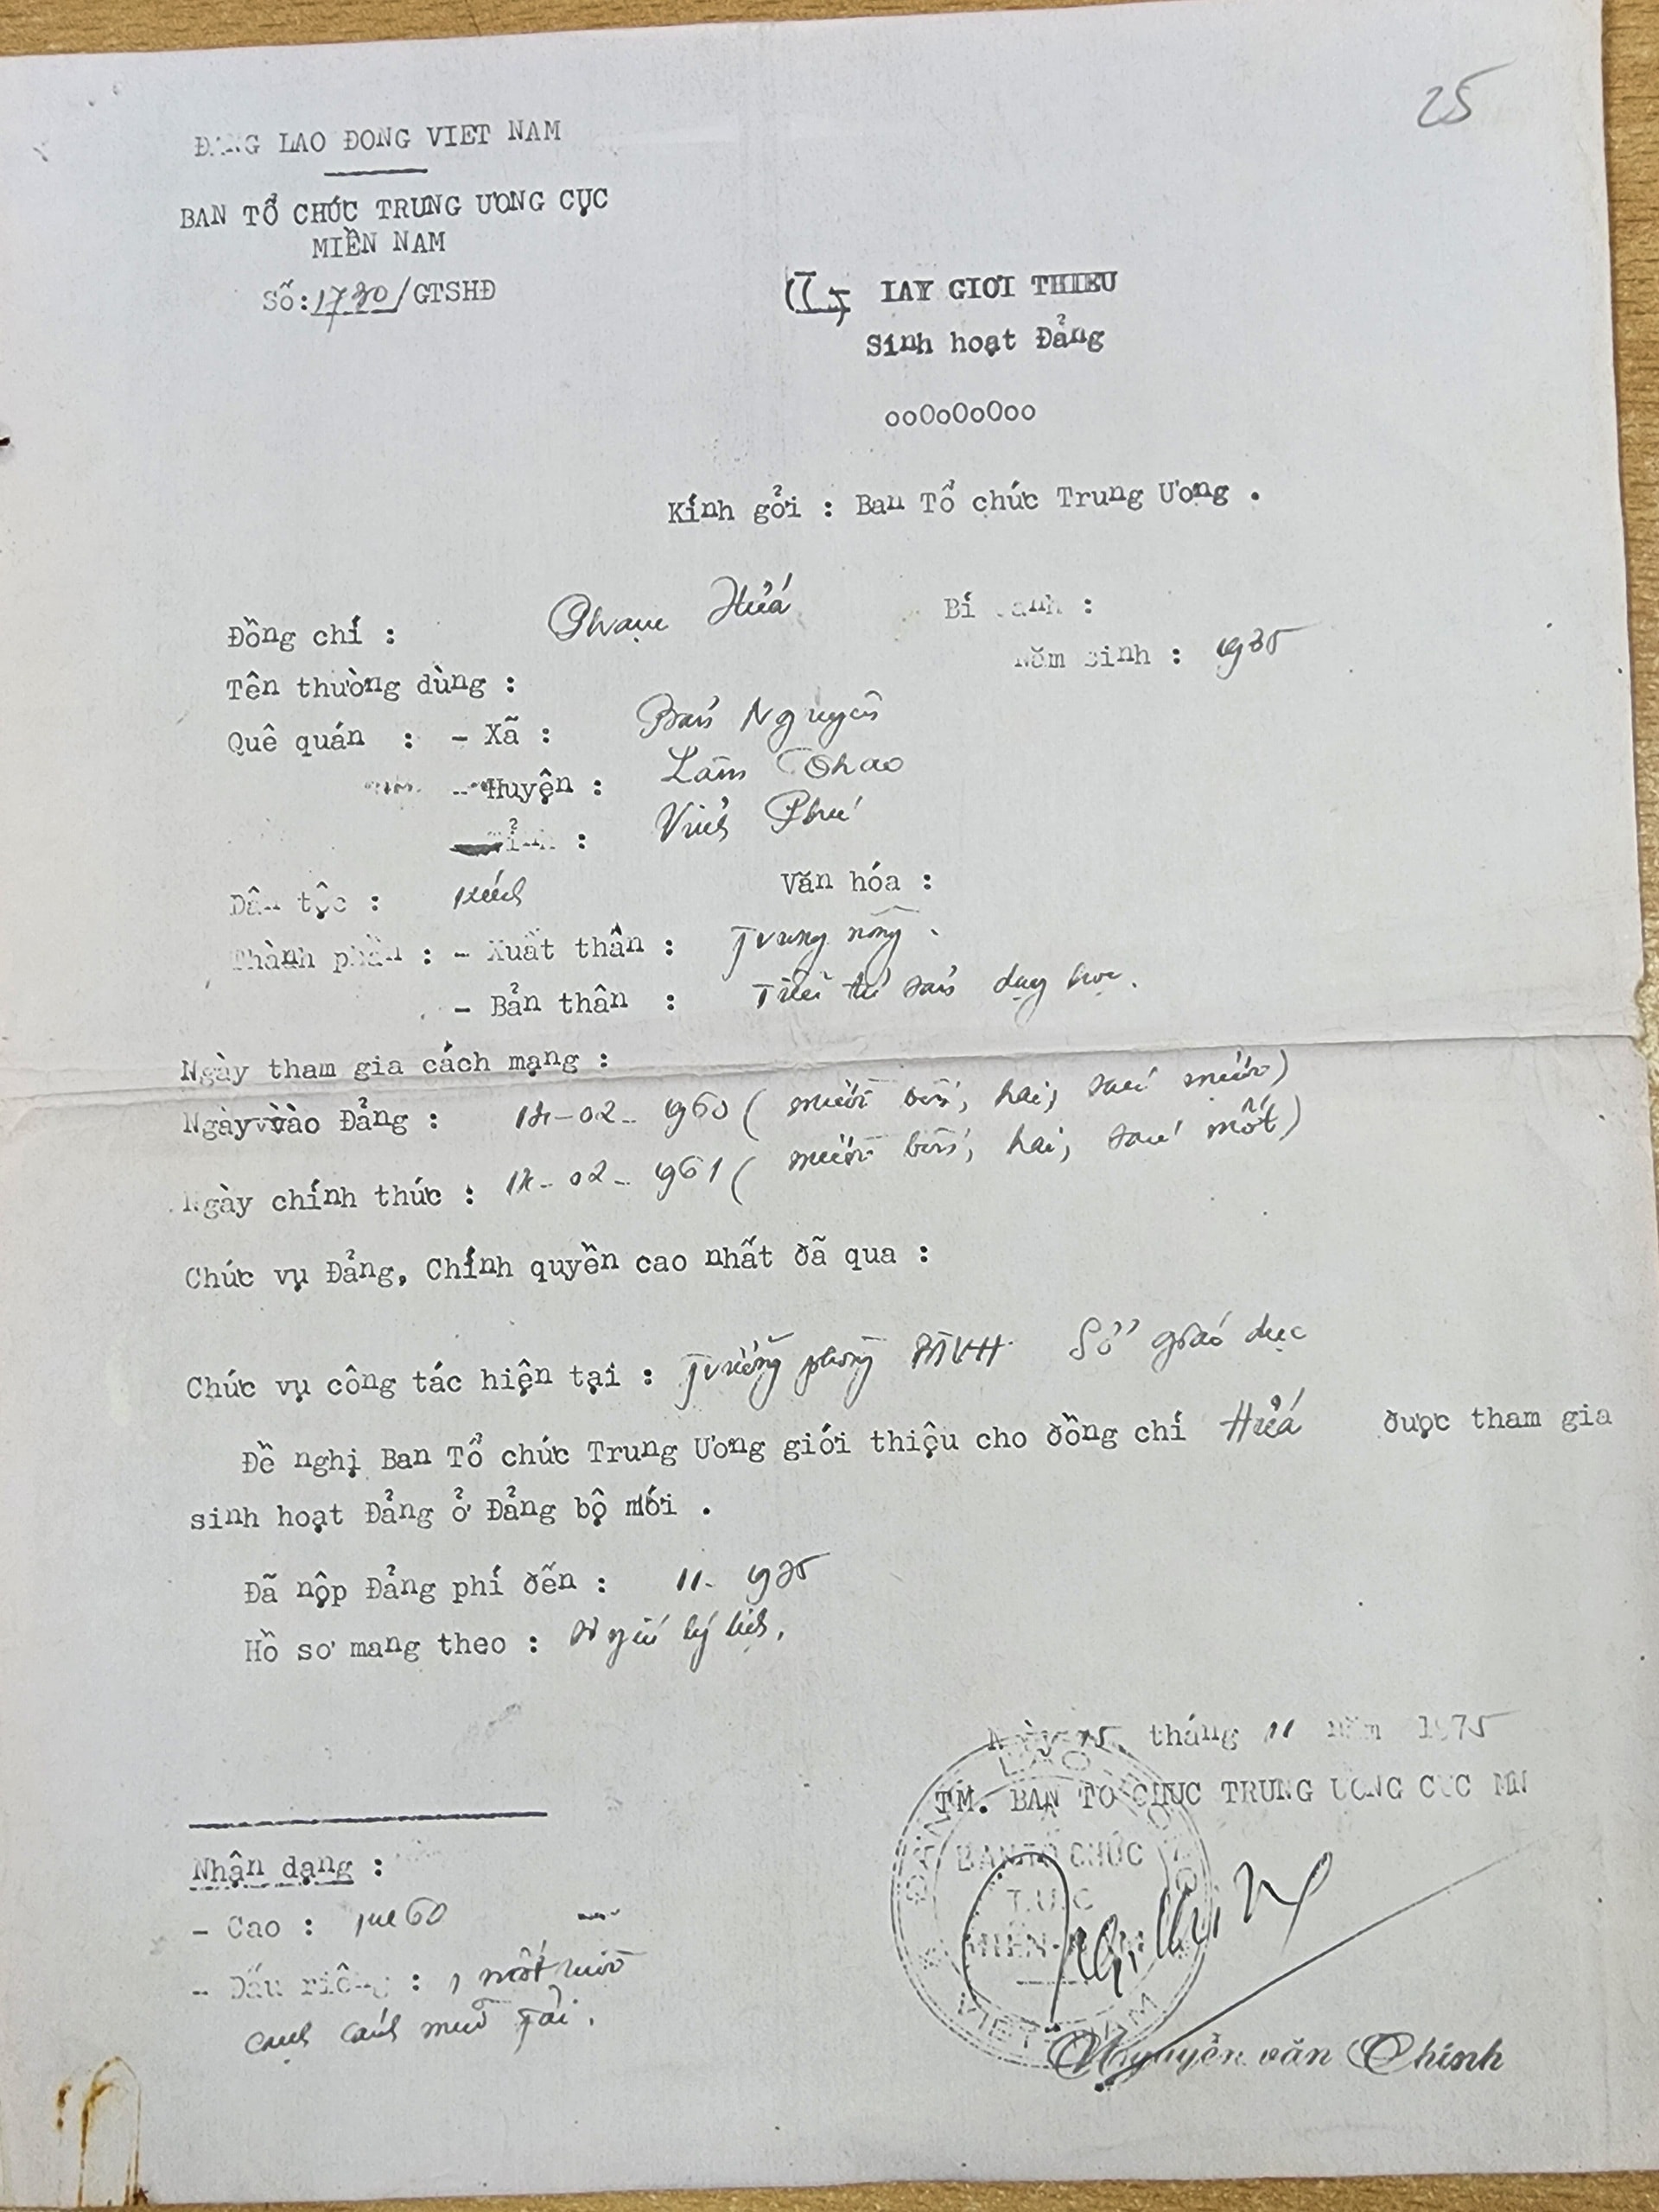 25
ĐẢNG LAO ĐONG VIET NAM
BAN TỔ CHỨC TRUNG ƯƠNG CỤC
MIỀN NAM
Số: 1730/GTSHĐ
IAY GIƠI THIEU
Sinh hoạt Đảng
ooOoOoOoo
Kính gởi : Ban Tổ chức Trung Ương .
Đồng chí : Phạm Hứa Bí danh :
Tên thường dùng : Năm sinh : 1935
Quê quán : - Xã : Bản Nguyên
- Huyện : Lâm Thao
Tỉnh : Vĩnh Phú
Dân tộc : kinh Văn hóa :
Thành phần : - Xuất thân : Trung nông .
- Bản thân : Tiểu tư sản dạy học .
Ngày tham gia cách mạng :
Ngày vào Đảng : 14-02-1960 ( mười bốn, hai, sáu mươi)
Ngày chính thức : 14-02-1961 ( mười bốn, hai, sáu mốt)
Chức vụ Đảng, Chính quyền cao nhất đã qua :
Chức vụ công tác hiện tại : Trưởng phòng BTVH Sở giáo dục
Đề nghị Ban Tổ chức Trung Ương giới thiệu cho đồng chí Hứa được tham gia
sinh hoạt Đảng ở Đảng bộ mới .
Đã nộp Đảng phí đến : 11-1975
Hồ sơ mang theo : lý lịch.
Ngày 15 tháng 11 năm 1975
TM. BAN TO CHUC TRUNG UONG CUC MN
BAN TỔ CHỨC
T.U.C
MIỀN-NAM
VIỆT NAM
Nguyễn văn Chính
Nhận dạng :
- Cao : 1m60
- Dấu riêng : 1 nốt ruồi
cạnh cánh mũi fải .